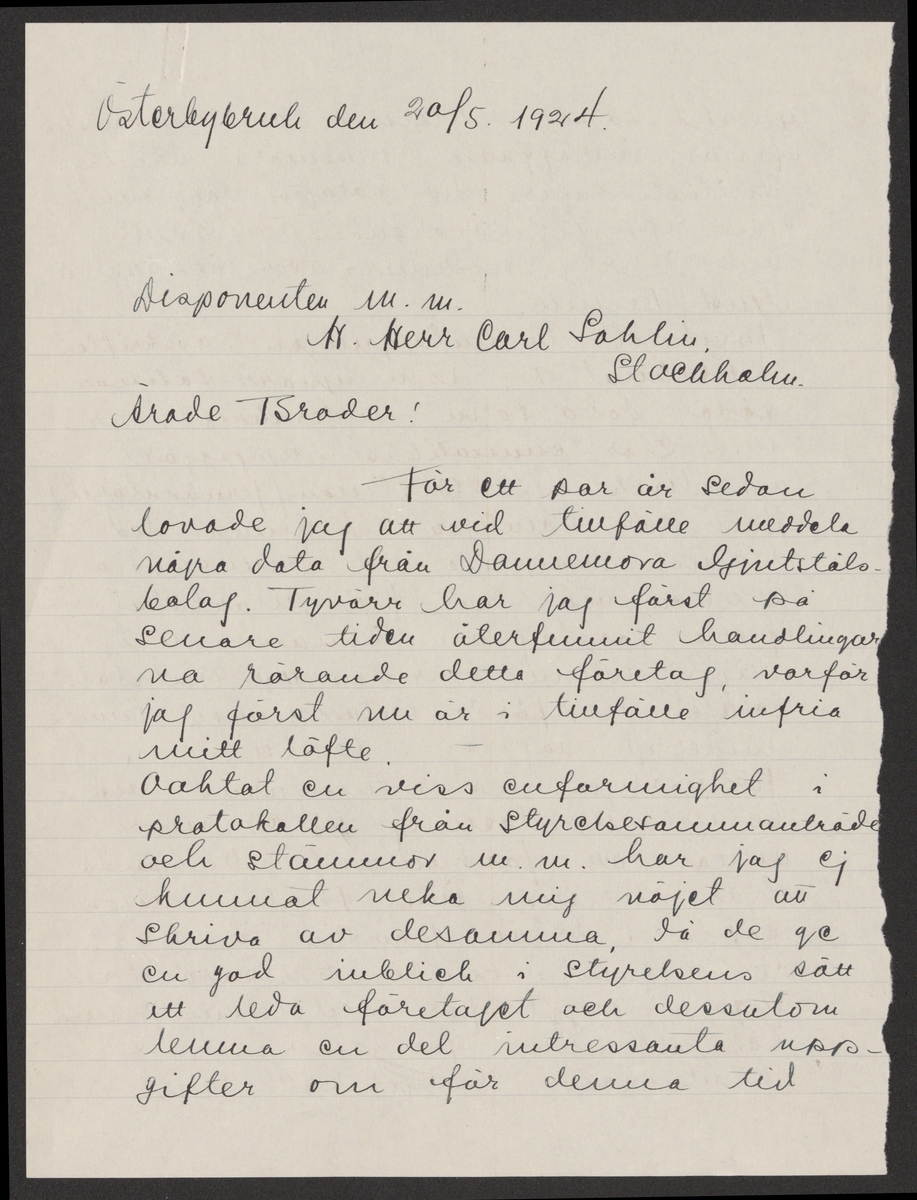 Österbybruk den 20/5. 1924.
Disponenten m. m.
H. Herr Carl Sahlin,
Stockholm.
Ärade Broder!
För ett par år sedan
lovade jag att vid tillfälle meddela
några data från Dannemora Gjutståls-
bolag. Tyvärr har jag först på
senare tiden återfunnit handlingar
na rörande detta företag, varför
jag först nu är i tillfälle infria
mitt löfte. —
Oaktat en viss enformighet i
protokollen från styrelsesammanträde
och stämmor m. m. har jag ej
kunnat neka mig nöjet att
skriva av desamma, då de ge
en god inblick i styrelsens sätt
att leda företaget och dessutom
lemna en del intressanta upp-
gifter om för denna tid